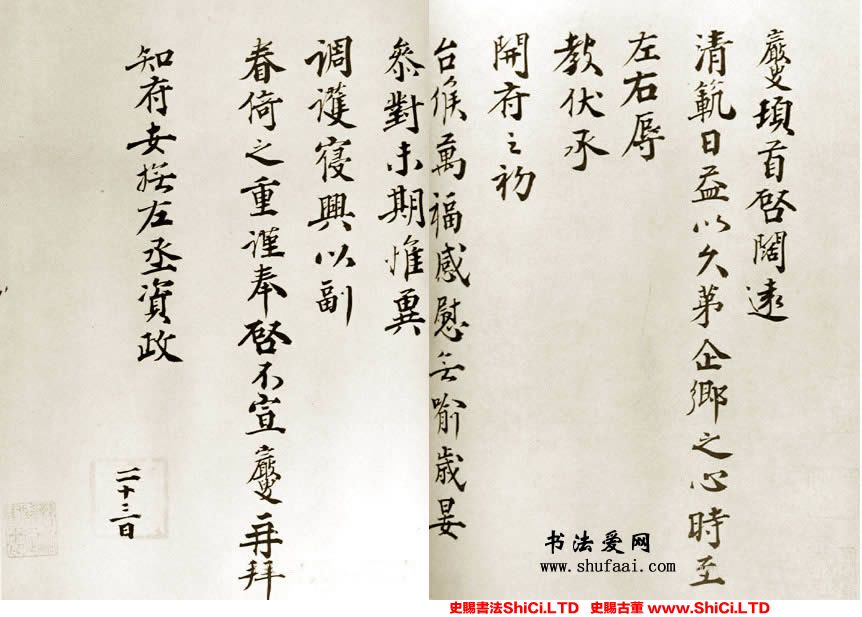 巖叟頓首啓闊遠
清範日益以久第企鄉之心時至
左右辱
教伏承
開府之初
台候萬福感慰無喻歲晏
叅對未期惟冀
調護寢興以副
眷倚之重謹奉啓不宣巖叟再拜
知府安撫左丞資政
二十三日
书法爱网
www.shufaai.com
史賜書法ShiCi.LTD 史賜古董 www.ShiCi.LTD